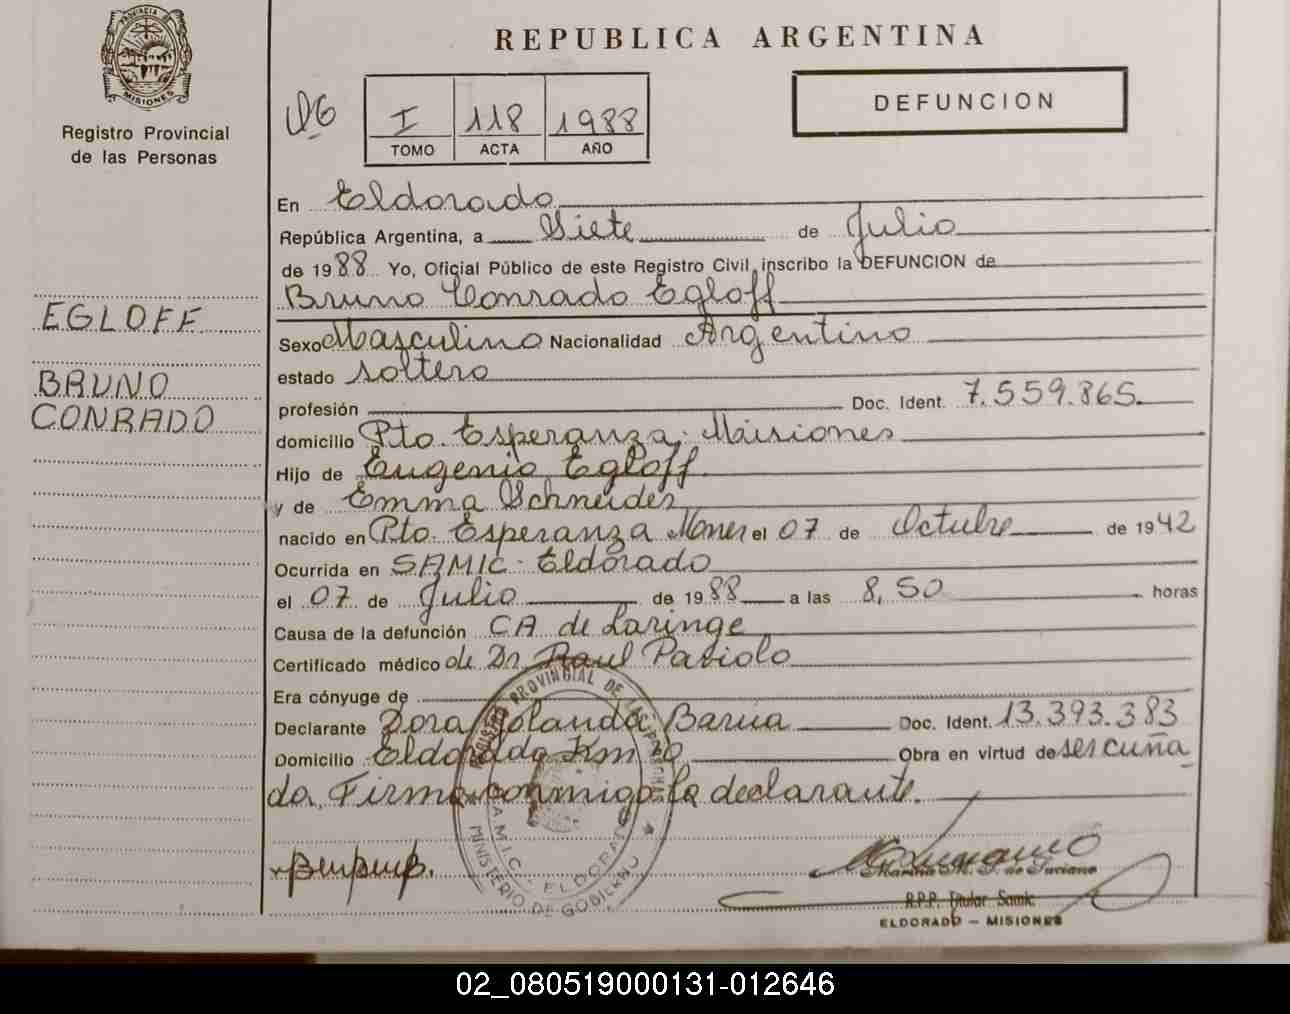 PROVINCIA
MISIONES
Registro Provincial
de las Personas
REPUBLICA ARGENTINA
I 118 1988
TOMO ACTA AÑO
DEFUNCION
EGLOFF
BRUNO
CONRADO
En Eldorado
República Argentina, a Siete de Julio
de 1988 Yo, Oficial Público de este Registro Civil, inscribo la DEFUNCION de
Bruno Conrado Egloff
Sexo Masculino Nacionalidad Argentino
estado soltero
profesión Doc. Ident. 7.559.865.
domicilio Pto. Esperanza. Misiones
Hijo de Eugenio Egloff
y de Emma Schneider
nacido en Pto. Esperanza Mnes el 07 de Octubre de 1942
Ocurrida en SAMIC. Eldorado
el 07 de Julio de 1988 a las 8,50 horas
Causa de la defunción CA de Laringe
Certificado médico de Dr. Raul
Era cónyuge de
Declarante Dora Yolanda Barúa Doc. Ident. 13.393.383
Domicilio Eldorado Km Obra en virtud de ser cuña
da, Firma conmigo la declarante.
REGISTRO PROVINCIAL DE LAS PERSONAS
S.A.M.I.C. - ELDORADO
MINISTERIO DE GOBIERNO
R.P.P. Titular Samic
ELDORADO - MISIONES
02_080519000131-012646